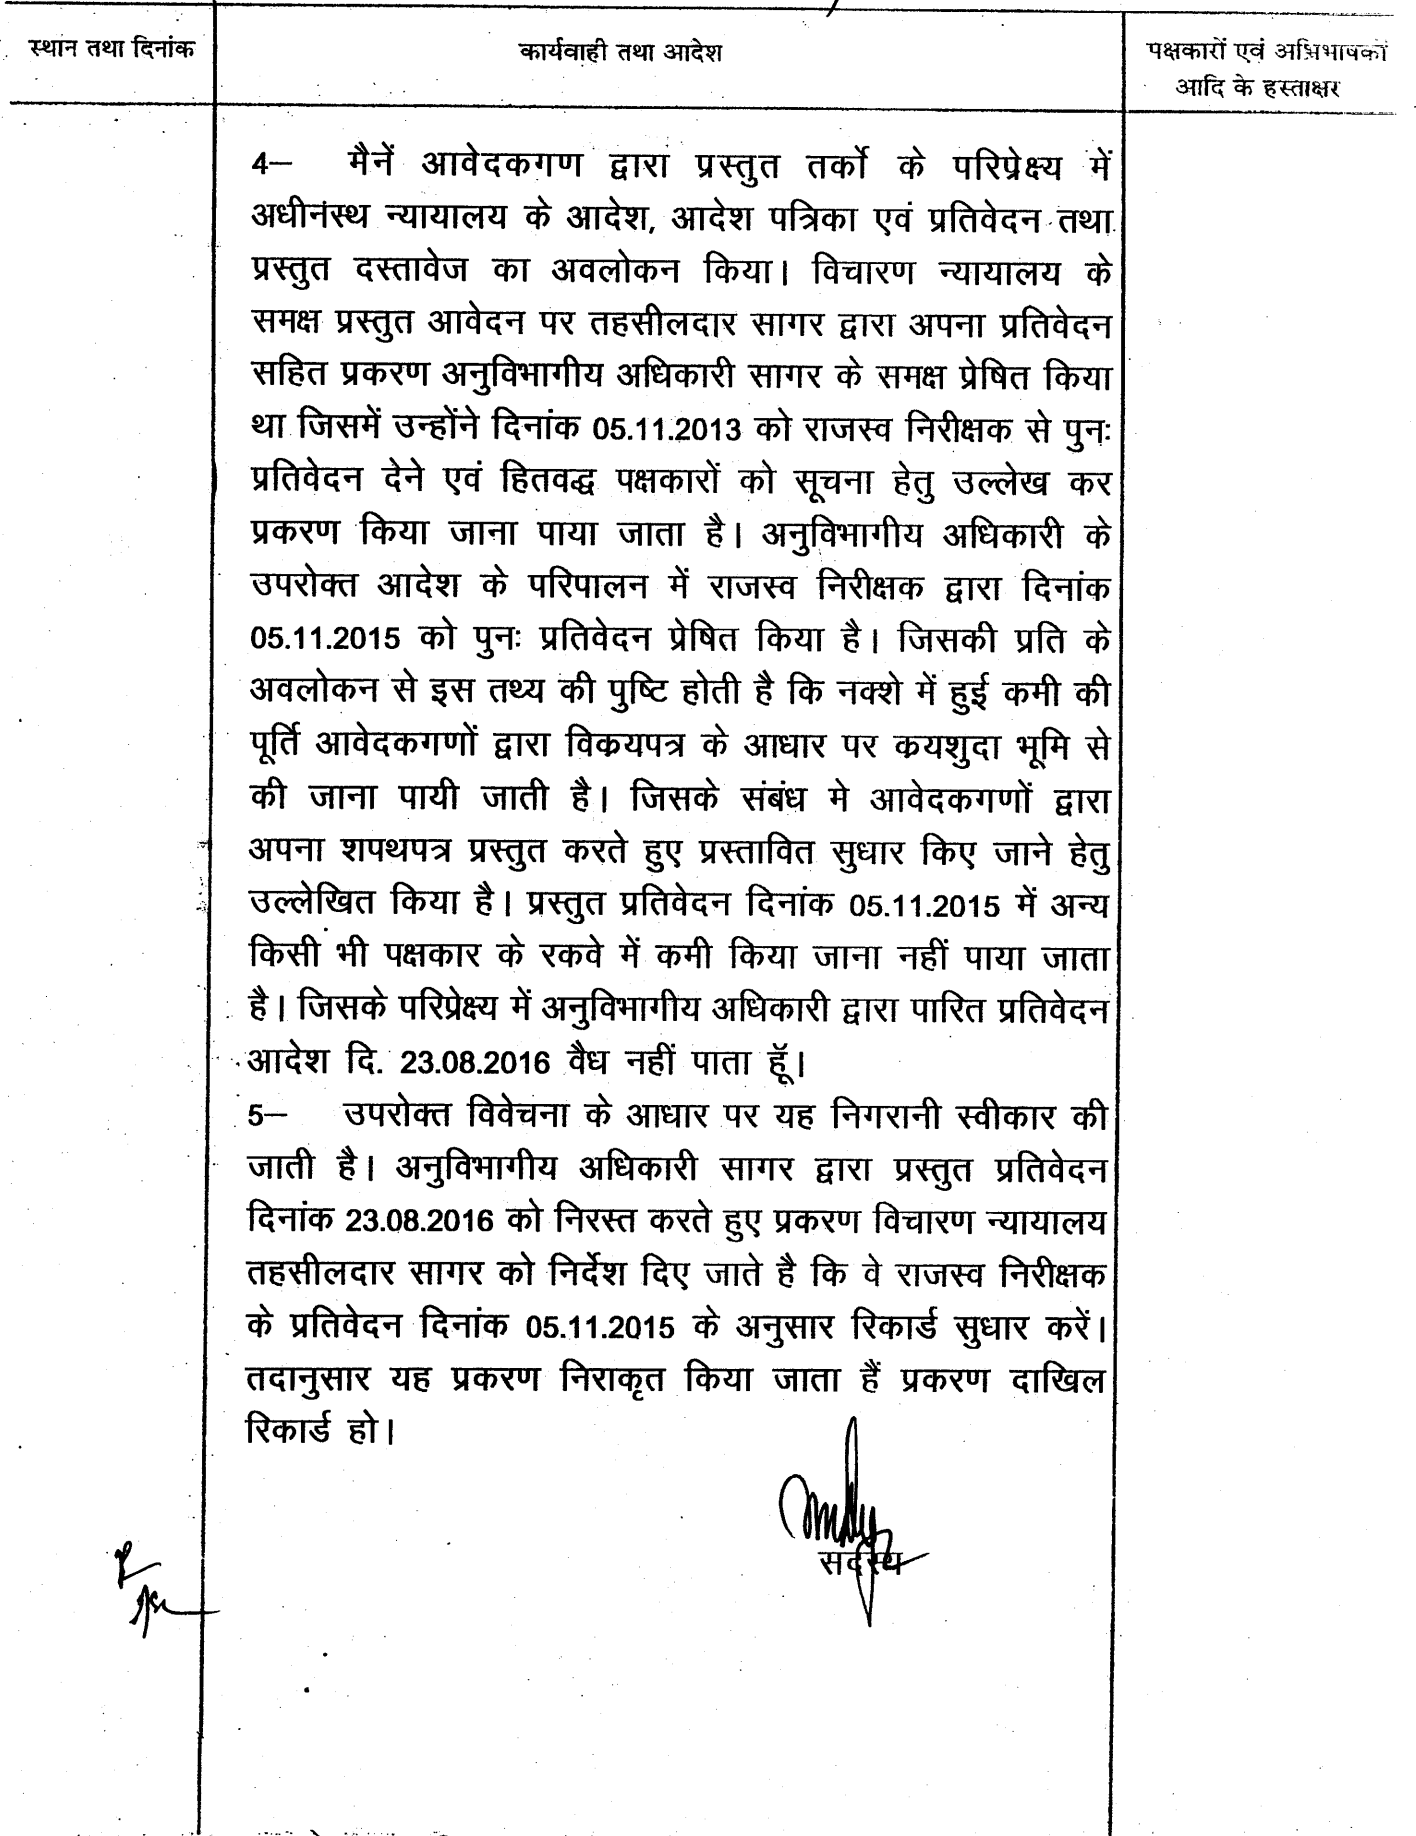 स्थान तथा दिनांक
कार्यवाही तथा आदेश
पक्षकारों एवं अभिभाषकों
आदि के हस्ताक्षर
4— मैनें आवेदकगण द्वारा प्रस्तुत तर्को के परिप्रेक्ष्य में
अधीनंस्थ न्यायालय के आदेश, आदेश पत्रिका एवं प्रतिवेदन तथा
प्रस्तुत दस्तावेज का अवलोकन किया। विचारण न्यायालय के
समक्ष प्रस्तुत आवेदन पर तहसीलदार सागर द्वारा अपना प्रतिवेदन
सहित प्रकरण अनुविभागीय अधिकारी सागर के समक्ष प्रेषित किया
था जिसमें उन्होंने दिनांक 05.11.2013 को राजस्व निरीक्षक से पुनः
प्रतिवेदन देने एवं हितवद्ध पक्षकारों को सूचना हेतु उल्लेख कर
प्रकरण किया जाना पाया जाता है। अनुविभागीय अधिकारी के
उपरोक्त आदेश के परिपालन में राजस्व निरीक्षक द्वारा दिनांक
05.11.2015 को पुनः प्रतिवेदन प्रेषित किया है। जिसकी प्रति के
अवलोकन से इस तथ्य की पुष्टि होती है कि नक्शे में हुई कमी की
पूर्ति आवेदकगणों द्वारा विक्रयपत्र के आधार पर क्रयशुदा भूमि से
की जाना पायी जाती है। जिसके संबंध मे आवेदकगणों द्वारा
अपना शपथपत्र प्रस्तुत करते हुए प्रस्तावित सुधार किए जाने हेतु
उल्लेखित किया है। प्रस्तुत प्रतिवेदन दिनांक 05.11.2015 में अन्य
किसी भी पक्षकार के रकवे में कमी किया जाना नहीं पाया जाता
है। जिसके परिप्रेक्ष्य में अनुविभागीय अधिकारी द्वारा पारित प्रतिवेदन
आदेश दि. 23.08.2016 वैध नहीं पाता हूॅ।
5— उपरोक्त विवेचना के आधार पर यह निगरानी स्वीकार की
जाती है। अनुविभागीय अधिकारी सागर द्वारा प्रस्तुत प्रतिवेदन
दिनांक 23.08.2016 को निरस्त करते हुए प्रकरण विचारण न्यायालय
तहसीलदार सागर को निर्देश दिए जाते है कि वे राजस्व निरीक्षक
के प्रतिवेदन दिनांक 05.11.2015 के अनुसार रिकार्ड सुधार करें।
तदानुसार यह प्रकरण निराकृत किया जाता हैं प्रकरण दाखिल
रिकार्ड हो।
सदस्य